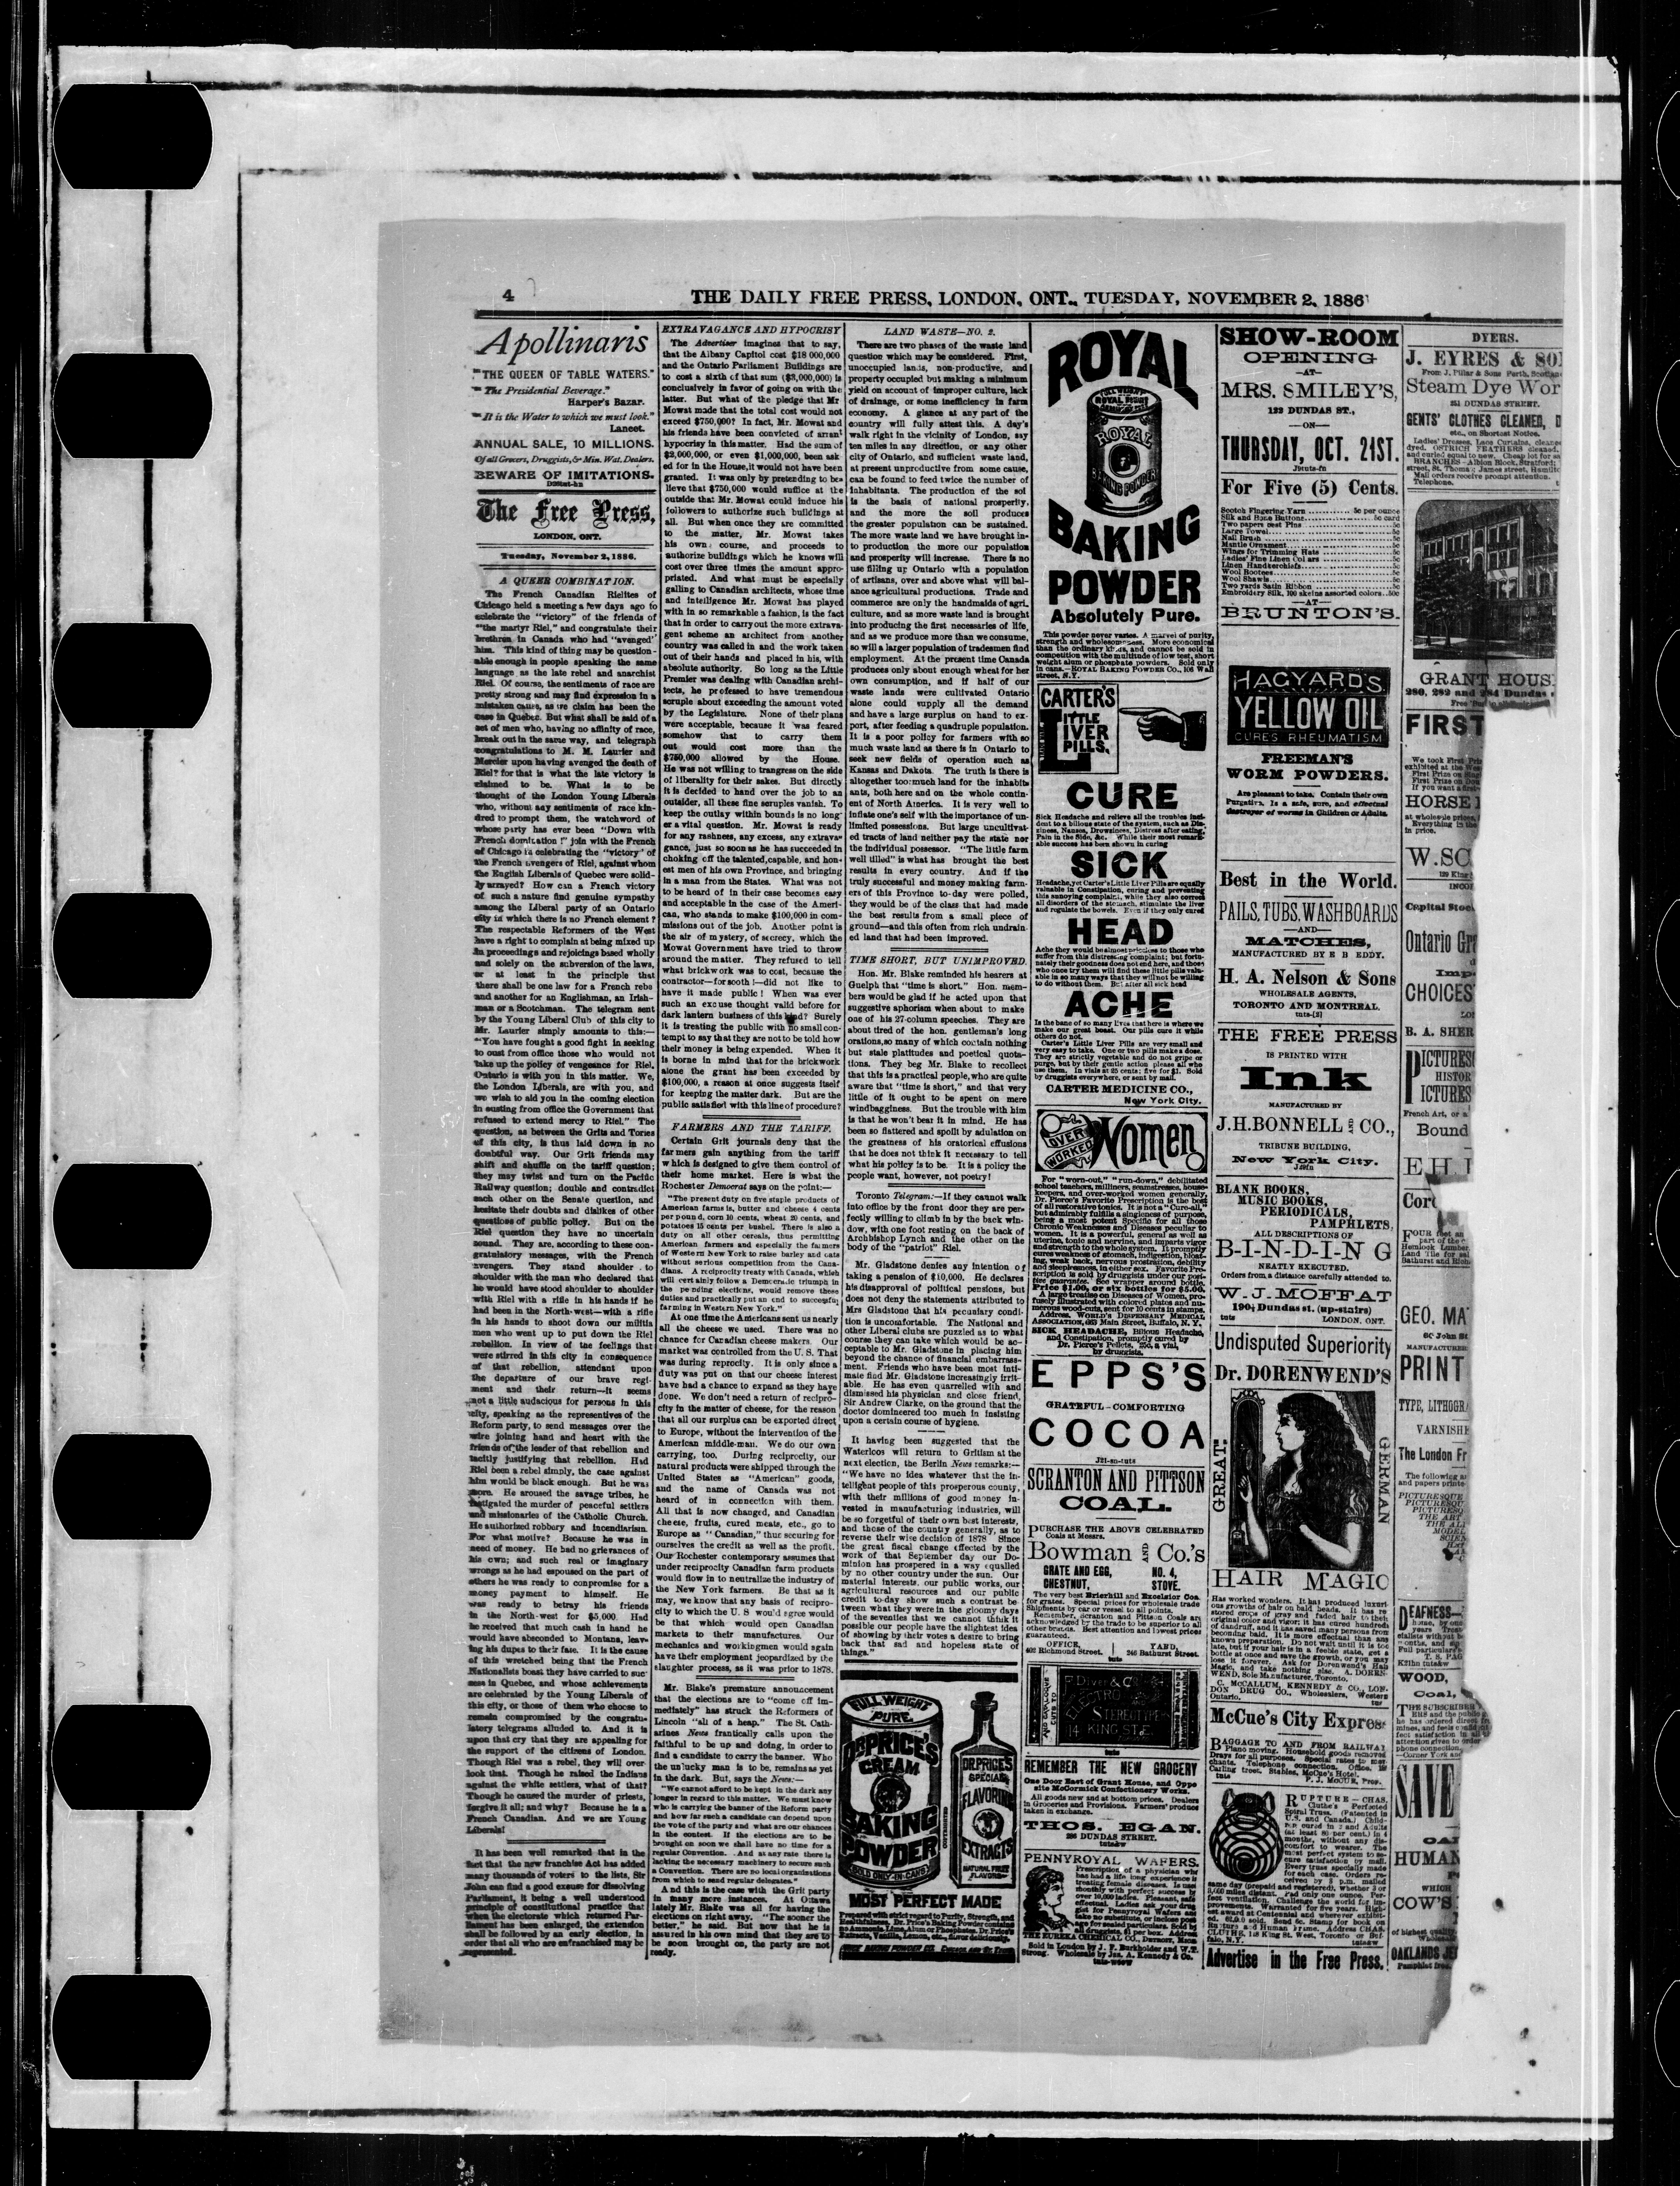 4
THE DAILY FREE PRESS, LONDON, ONT., TUESDAY, NOVEMBER 2, 1886
Apollinaris
"THE QUEEN OF TABLE WATERS."
"The Presidential Beverage."
Harper's Bazar.
"It is the Water to which we must look."
Lancet.
ANNUAL SALE, 10 MILLIONS.
Of all Grocers, Druggists, & Min. Wat. Dealers.
BEWARE OF IMITATIONS.
The Free Press,
LONDON, ONT.
Tuesday, November 2, 1886.
A QUEER COMBINATION.
The French Canadian Rielites of
Chicago held a meeting a few days ago to
celebrate the "victory" of the friends of
"the martyr Riel," and congratulate their
brethren in Canada who had "avenged"
him. This kind of thing may be question-
able enough in people speaking the same
language as the late rebel and anarchist
Riel. Of course, the sentiments of race are
pretty strong and may find expression in a
mistaken cause, as we claim has been the
case in Quebec. But what shall be said of a
set of men who, having no affinity of race,
break out in the same way, and telegraph
congratulations to M. M. Laurier and
Mercier upon having avenged the death of
Riel? for that is what the late victory is
claimed to be. What is to be
thought of the London Young Liberals
who, without any sentiments of race kin-
dred to prompt them, the watchword of
whose party has ever been "Down with
French domination!" join with the French
of Chicago in celebrating the "victory" of
the French avengers of Riel, against whom
the English Liberals of Quebec were solid-
ly arrayed? How can a French victory
of such a nature find genuine sympathy
among the Liberal party of an Ontario
city in which there is no French element?
The respectable Reformers of the West
have a right to complain at being mixed up
in proceedings and rejoicings based wholly
and solely on the subversion of the laws,
or at least in the principle that
there shall be one law for a French rebe
and another for an Englishman, an Irish-
man or a Scotchman. The telegram sent
by the Young Liberal Club of this city to
Mr. Laurier simply amounts to this:—
"You have fought a good fight in seeking
to oust from office those who would not
take up the policy of vengeance for Riel.
Ontario is with you in this matter. We,
the London Liberals, are with you, and
we wish to aid you in the coming election
in ousting from office the Government that
refused to extend mercy to Riel." The
question, as between the Grits and Tories
of this city, is thus laid down in no
doubtful way. Our Grit friends may
shift and shuffle on the tariff question;
they may twist and turn on the Pacific
Railway question; double and contradict
each other on the Senate question, and
hesitate their doubts and dislikes of other
questions of public policy. But on the
Riel question they have no uncertain
sound. They are, according to these con-
gratulatory messages, with the French
avengers. They stand shoulder to
shoulder with the man who declared that
he would have stood shoulder to shoulder
with Riel with a rifle in his hands if he
had been in the North-west—with a rifle
in his hands to shoot down our militia
men who went up to put down the Riel
rebellion. In view of the feelings that
were stirred in this city in consequence
of that rebellion, attendant upon
the departure of our brave regi-
ment and their return—it seems
not a little audacious for persons in this
city, speaking as the representives of the
Reform party, to send messages over the
wire joining hand and heart with the
friends of the leader of that rebellion and
tacitly justifying that rebellion. Had
Riel been a rebel simply, the case against
him would be black enough. But he was
more. He aroused the savage tribes, he
instigated the murder of peaceful settlers
and missionaries of the Catholic Church.
He authorized robbery and incendiarism.
For what motive? Because he was in
need of money. He had no grievances of
his own; and such real or imaginary
wrongs as he had espoused on the part of
others he was ready to compromise for a
money payment to himself. He
was ready to betray his friends
in the North-west for $5,000. Had
he received that much cash in hand he
would have absconded to Montana, leav-
ing his dupes to their fate. It is the cause
of this wretched being that the French
Nationalists boast they have carried to suc-
cess in Quebec, and whose achievements
are celebrated by the Young Liberals of
this city, or those of them who choose to
remain compromised by the congratu-
latory telegrams alluded to. And it is
upon that cry that they are appealing for
the support of the citizens of London.
Though Riel was a rebel, they will over
look that. Though he raised the Indians
against the white settlers, what of that?
Though he caused the murder of priests,
forgive it all; and why? Because he is a
French Canadian. And we are Young
Liberals!
It has been well remarked that in the
fact that the new franchise Act has added
many thousands of voters to the lists, Sir
John can find a good excuse for dissolving
Parliament, it being a well understood
principle of constitutional practice that
when the electorate which returned Par-
liament has been enlarged, the extension
shall be followed by an early election, in
order that all who are enfranchised may be
represented.
EXTRAVAGANCE AND HYPOCRISY
The Advertiser imagines that to say,
that the Albany Capitol cost $18 000,000
and the Ontario Parliament Buildings are
to cost a sixth of that sum ($3,000,000) is
conclusively in favor of going on with the
latter. But what of the pledge that Mr
Mowat made that the total cost would not
exceed $750,000? In fact, Mr. Mowat and
his friends have been convicted of arrant
hypocrisy in this matter. Had the sum of
$3,000,000, or even $1,000,000, been ask
ed for in the House, it would not have been
granted. It was only by pretending to be-
lieve that $750,000 would suffice at the
outside that Mr. Mowat could induce his
followers to authorize such buildings at
all. But when once they are committed
to the matter, Mr. Mowat takes
his own course, and proceeds to
authorize buildings which he knows will
cost over three times the amount appro-
priated. And what must be especially
galling to Canadian architects, whose time
and intelligence Mr. Mowat has played
with in so remarkable a fashion, is the fact
that in order to carry out the more extrava-
gent scheme an architect from another
country was called in and the work taken
out of their hands and placed in his, with
absolute authority. So long as the Little
Premier was dealing with Canadian archi-
tects, he professed to have tremendous
scruple about exceeding the amount voted
by the Legislature. None of their plans
were acceptable, because it was feared
somehow that to carry them
out would cost more than the
$750,000 allowed by the House.
He was not willing to trangress on the side
of liberality for their sakes. But directly
it is decided to hand over the job to an
outsider, all these fine scruples vanish. To
keep the outlay within bounds is no long-
er a vital question. Mr. Mowat is ready
for any rashness, any excess, any extrava-
gance, just so soon as he has succeeded in
choking off the talented, capable, and hon-
est men of his own Province, and bringing
in a man from the States. What was not
to be heard of in their case becomes easy
and acceptable in the case of the Ameri-
can, who stands to make $100,000 in com-
missions out of the job. Another point is
the air of mystery, of secrecy, which the
Mowat Government have tried to throw
around the matter. They refused to tell
what brickwork was to cost, because the
contractor—forsooth!—did not like to
have it made public! When was ever
such an excuse thought valid before for
dark lantern business of this kind? Surely
it is treating the public with no small con-
tempt to say that they are not to be told how
their money is being expended. When it
is borne in mind that for the brickwork
alone the grant has been exceeded by
$100,000, a reason at once suggests itself
for keeping the matter dark. But are the
public satisfied with this line of procedure?
FARMERS AND THE TARIFF.
Certain Grit journals deny that the
farmers gain anything from the tariff
which is designed to give them control of
their home market. Here is what the
Rochester Democrat says on the point:—
"The present duty on five staple products of
American farms is, butter and cheese 4 cents
per pound, corn 10 cents, wheat 20 cents, and
potatoes 15 cents per bushel. There is also a
duty on all other cereals, thus permitting
American farmers and especially the farmers
of Western New York to raise barley and oats
without serious competition from the Cana-
dians. A reciprocity treaty with Canada, which
will certainly follow a Democratic triumph in
the pending elections, would remove these
duties and practically put an end to successful
farming in Western New York."
At one time the Americans sent us nearly
all the cheese we used. There was no
chance for Canadian cheese makers. Our
market was controlled from the U. S. That
was during reprocity. It is only since a
duty was put on that our cheese interest
have had a chance to expand as they have
done. We don't need a return of recipro-
city in the matter of cheese, for the reason
that all our surplus can be exported direct
to Europe, without the intervention of the
American middle-man. We do our own
carrying, too. During reciprocity, our
natural products were shipped through the
United States as "American" goods,
and the name of Canada was not
heard of in connection with them.
All that is now changed, and Canadian
cheese, fruits, cured meats, etc., go to
Europe as "Canadian," thus securing for
ourselves the credit as well as the profit.
Our Rochester contemporary assumes that
under reciprocity Canadian farm products
would flow in to neutralize the industry of
the New York farmers. Be that as it
may, we know that any basis of recipro-
city to which the U. S would agree would
be that which would open Canadian
markets to their manufactures. Our
mechanics and workingmen would again
have their employment jeopardized by the
slaughter process, as it was prior to 1878.
Mr. Blake's premature announcement
that the elections are to "come off im-
mediately" has struck the Reformers of
Lincoln "all of a heap." The St. Cath-
arines News frantically calls upon the
faithful to be up and doing, in order to
find a candidate to carry the banner. Who
the unlucky man is to be, remains as yet
in the dark. But, says the News:—
"We cannot afford to be kept in the dark any
longer in regard to this matter. We must know
who is carrying the banner of the Reform party
and how far such a candidate can depend upon
the vote of the party and what are our chances
in the contest. If the elections are to be
brought on soon we shall have no time for a
regular Convention. And at any rate there is
lacking the necessary machinery to secure such
a Convention. There are no local organizations
from which to send regular delegates."
And this is the case with the Grit party
in many more instances. At Ottawa
lately Mr. Blake was all for having the
elections on right away. "The sooner the
better," he said. But now that he is
assured in his own mind that they are to
be soon brought on, the party are not
ready.
LAND WASTE—NO. 2.
There are two phases of the waste land
question which may be considered. First,
unoccupied lands, non-productive, and
property occupied but making a minimum
yield on account of improper culture, lack
of drainage, or some inefficiency in farm
economy. A glance at any part of the
country will fully attest this. A day's
walk right in the vicinity of London, say
ten miles in any direction, or any other
city of Ontario, and sufficient waste land,
at present unproductive from some cause,
can be found to feed twice the number of
inhabitants. The production of the soi
is the basis of national prosperity,
and the more the soil produces
the greater population can be sustained.
The more waste land we have brought in-
to production the more our population
and prosperity will increase. There is no
use filling up Ontario with a population
of artisans, over and above what will bal-
ance agricultural productions. Trade and
commerce are only the handmaids of agri-
culture, and as more waste land is brought
into producing the first necessaries of life,
and as we produce more than we consume,
so will a larger population of tradesmen find
employment. At the present time Canada
produces only about enough wheat for her
own consumption, and if half of our
waste lands were cultivated Ontario
alone could supply all the demand
and have a large surplus on hand to ex-
port, after feeding a quadruple population.
It is a poor policy for farmers with so
much waste land as there is in Ontario to
seek new fields of operation such as
Kansas and Dakota. The truth is there is
altogether too much land for the inhabit
ants, both here and on the whole contin-
ent of North America. It is very well to
inflate one's self with the importance of un-
limited possessions. But large uncultivat-
ed tracts of land neither pay the state nor
the individual possessor. "The little farm
well tilled" is what has brought the best
results in every country. And if the
truly successful and money making farm-
ers of this Province to-day were polled,
they would be of the class that had made
the best results from a small piece of
ground—and this often from rich undrain-
ed land that had been improved.
TIME SHORT, BUT UNIMPROVED.
Hon. Mr. Blake reminded his hearers at
Guelph that "time is short." Hon. mem-
bers would be glad if he acted upon that
suggestive aphorism when about to make
one of his 27-column speeches. They are
about tired of the hon. gentleman's long
orations, so many of which contain nothing
but stale platitudes and poetical quota-
tions. They beg Mr. Blake to recollect
that this is a practical people, who are quite
aware that "time is short," and that very
little of it ought to be spent on mere
windbagginess. But the trouble with him
is that he won't beat it in mind. He has
been so flattered and spoilt by adulation on
the greatness of his oratorical effusions
that he does not think it necessary to tell
what his policy is to be. It is a policy the
people want, however, not poetry!
Toronto Telegram:—If they cannot walk
into office by the front door they are per-
fectly willing to climb in by the back win-
dow, with one foot resting on the back of
Archbishop Lynch and the other on the
body of the "patriot" Riel.
Mr. Gladstone denies any intention of
taking a pension of $10,000. He declares
his disapproval of political pensions, but
does not deny the statements attributed to
Mrs Gladstone that his pecuniary condi-
tion is uncomfortable. The National and
other Liberal clubs are puzzled as to what
course they can take which would be ac-
ceptable to Mr. Gladstone in placing him
beyond the chance of financial embarrass-
ment. Friends who have been most inti-
mate find Mr. Gladstone increasingly irrit-
able. He has even quarrelled with and
dismissed his physician and close friend,
Sir Andrew Clarke, on the ground that the
doctor domineered too much in insisting
upon a certain course of hygiene.
It having been suggested that the
Waterloos will return to Gritism at the
next election, the Berlin News remarks:—
"We have no idea whatever that the in-
telligent people of this prosperous county,
with their millions of good money in-
vested in manufacturing industries, will
be so forgetful of their own best interests,
and those of the country generally, as to
reverse their wise decision of 1878 Since
the great fiscal change effected by the
work of that September day our Do-
minion has prospered in a way equalled
by no other country under the sun. Our
material interests, our public works, our
agricultural resources and our public
credit to-day show such a contrast be-
tween what they were in the gloomy days
of the seventies that we cannot think it
possible our people have the slightest idea
of showing by their votes a desire to bring
back that sad and hopeless state of
things."
FULL WEIGHT
PURE
DR PRICE'S
CREAM
BAKING
POWDER
SOLD ONLY IN CANS
DR PRICE'S
SPECIAL
FLAVORING
EXTRACTS
NATURAL FRUIT
FLAVORS
MOST PERFECT MADE
Prepared with strict regard to Purity, Strength, and
Healthfulness. Dr. Price's Baking Powder contains
no Ammonia, Lime, Alum or Phosphates. Dr. Price's
Extracts, Vanilla, Lemon, etc., flavor deliciously.
ROYAL
ROYAL
BAKING POWDER
BAKING
POWDER
Absolutely Pure.
This powder never varies. A marvel of purity,
strength and wholesomeness. More economical
than the ordinary kinds, and cannot be sold in
competition with the multitude of low test, short
weight alum or phosphate powders. Sold only
in cans.—ROYAL BAKING POWDER CO., 106 Wall
street, N.Y.
CARTER'S
LITTLE
LIVER
PILLS.
CURE
Sick Headache and relieve all the troubles inci-
dent to a bilious state of the system, such as Diz-
ziness, Nausea, Drowsiness, Distress after eating,
Pain in the Side, &c. While their most remark-
able success has been shown in curing
SICK
Headache, yet Carter's Little Liver Pills are equally
valuable in Constipation, curing and preventing
this annoying complaint, while they also correct
all disorders of the stomach, stimulate the liver
and regulate the bowels. Even if they only cured
HEAD
Ache they would be almost priceless to those who
suffer from this distressing complaint; but fortu-
nately their goodness does not end here, and those
who once try them will find these little pills valu-
able in so many ways that they will not be willing
to do without them. But after all sick head
ACHE
Is the bane of so many lives that here is where we
make our great boast. Our pills cure it while
others do not.
Carter's Little Liver Pills are very small and
very easy to take. One or two pills make a dose.
They are strictly vegetable and do not gripe or
purge, but by their gentle action please all who
use them. In vials at 25 cents; five for $1. Sold
by druggists everywhere, or sent by mail.
CARTER MEDICINE CO.,
New York City.
OVER
WORKED
Women
For "worn-out," "run-down," debilitated
school teachers, milliners, seamstresses, house-
keepers, and over-worked women generally,
Dr. Pierce's Favorite Prescription is the best
of all restorative tonics. It is not a "Cure-all,"
but admirably fulfills a singleness of purpose,
being a most potent Specific for all those
Chronic Weaknesses and Diseases peculiar to
women. It is a powerful, general as well as
uterine, tonic and nervine, and imparts vigor
and strength to the whole system. It promptly
cures weakness of stomach, indigestion, bloat-
ing, weak back, nervous prostration, debility
and sleeplessness, in either sex. Favorite Pre-
scription is sold by druggists under our posi-
tive guarantee. See wrapper around bottle.
Price $1.00, or six bottles for $5.00.
A large treatise on Diseases of Women, pro-
fusely illustrated with colored plates and nu-
merous wood-cuts, sent for 10 cents in stamps.
Address, WORLD'S DISPENSARY MEDICAL
ASSOCIATION, 663 Main Street, Buffalo, N. Y.
SICK HEADACHE, Bilious Headache,
and Constipation, promptly cured by
Dr. Pierce's Pellets. 25c. a vial,
by druggists.
EPPS'S
GRATEFUL-COMFORTING
COCOA
SCRANTON AND PITTSON
COAL.
PURCHASE THE ABOVE CELEBRATED
Coals at Messrs.
Bowman AND Co.'s
GRATE AND EGG, NO. 4,
CHESTNUT, STOVE.
The very best Brierhill and Excelsior Coa
for grates. Special prices for wholesale trade
Shipments by car or vessel to all points.
Remember, Scranton and Pittson Coals are
acknowledged by the trade to be superior to all
other brands. Best attention and lowest prices
guaranteed.
OFFICE, YARD,
402 Richmond Street. 246 Bathurst Street.
F Diver & Co
ELECTRO
STEREOTYPERS
14 KING ST. E.
REMEMBER THE NEW GROCERY
One Door East of Grant House, and Oppo
site McCormick Confectionery Works.
All goods new and at bottom prices. Dealers
in Groceries and Provisions. Farmers' produce
taken in exchange.
THOS. EGAN.
DUNDAS STREET.
PENNYROYAL WAFERS.
Prescription of a physician who
has had a life long experience in
treating female diseases. Is used
monthly with perfect success by
over 10,000 ladies. Pleasant, safe
effectual. Ladies ask your drug
gist for Pennyroyal Wafers and
take no substitute, or inclose post
age for sealed particulars. Sold by
all druggists, $1 per box. Address
THE EUREKA CHEMICAL CO., DETROIT, MICH
Sold in London by J. F. Burkholder and W. T.
Strong. Wholesale by Jas. A. Kennedy & Co.
SHOW-ROOM
OPENING
—AT—
MRS. SMILEY'S,
122 DUNDAS ST.,
—ON—
THURSDAY, OCT. 21ST.
For Five (5) Cents.
Scotch Fingering Yarn 5c per ounce
Silk and Bone Buttons 5c card
Two papers best Pins 5c
Large Towel 5c
Nail Brush 5c
Mantle Ornament 5c
Wings for Trimming Hats 5c
Ladies' Fine Linen Collars 5c
Linen Handkerchiefs 5c
Wool Bootees 5c
Wool Shawls 5c
Two yards Satin Ribbon 5c
Embroidery Silk, 100 skeins assorted colors..50c
—AT—
BRUNTON'S.
HAGYARD'S
YELLOW OIL
CURES RHEUMATISM
FREEMAN'S
WORM POWDERS.
Are pleasant to take. Contain their own
Purgative. Is a safe, sure, and effectual
destroyer of worms in Children or Adults.
Best in the World.
PAILS, TUBS, WASHBOARDS
—AND—
MATCHES,
MANUFACTURED BY E B EDDY.
H. A. Nelson & Sons
WHOLESALE AGENTS,
TORONTO AND MONTREAL.
THE FREE PRESS
IS PRINTED WITH
Ink
MANUFACTURED BY
J.H. BONNELL AND CO.,
TRIBUNE BUILDING,
New York City.
BLANK BOOKS,
MUSIC BOOKS,
PERIODICALS,
PAMPHLETS,
ALL DESCRIPTIONS OF
B-I-N-D-I-N G
NEATLY EXECUTED.
Orders from a distance carefully attended to.
W. J. MOFFAT
190½ Dundas st. (up-stairs)
LONDON, ONT.
Undisputed Superiority
Dr. DORENWEND'S
GREAT
GERMAN
HAIR MAGIC
Has worked wonders. It has produced luxuri
ous growths of hair on bald heads. It has re
stored crops of gray and faded hair to their
original color and vigor; it has cured hundreds
of dandruff, and it has saved many persons from
becoming bald. It is more effectual than any
known preparation. Do not wait until it is too
late, but if your hair is in a feeble state, get a
bottle at once and save the growth, or you may
lose it forever. Ask for Dorenwend's Hair
Magic, and take nothing else. A. DOREN-
WEND, Sole Manufacturer, Toronto.
C. McCALLUM, KENNEDY & CO., LON-
DON DRUG CO., Wholesalers, Western
Ontario.
McCue's City Express
BAGGAGE TO AND FROM RAILWAY
Piano moving. Household goods removed
Drays for all purposes. Special rates to mer
chants. Telephone connection. Office,
Carling treet. Stables, McCue's Hotel.
P. J. McCUE, Prop.
RUPTURE — CHAS.
Cluthe's Perfected
Spiral Truss. (Patented in
U.S. and Canada.) Child-
ren cured in 2 and Adults
(at least 80 per cent.) in 4
months, without any dis-
comfort to wearer. The
most perfect system to se-
cure satisfaction by mail.
Every truss specially made
for each case. Orders re-
ceived by 3 p.m. mailed
same day (prepaid and registered), whether 3 or
3,000 miles distant. Pad only one ounce. Per-
fect ventilation. Challenge the world for im-
provements. Warranted for five years. High-
est award at Centennial and wherever exhibit-
ed. Send 6c. Stamp for book on
Rupture and Human Frame. Address CHAS.
CLUTHE, 118 King St. West, Toronto or Buf-
falo, N.Y.
Advertise in the Free Press.
DYERS.
J. EYRES & SO
From J. Pillar & Sons Perth, Scotlan
Steam Dye Wor
251 DUNDAS STREET.
GENTS' CLOTHES CLEANED, D
etc., on Shortest Notice.
Ladies' Dresses, Lace Curtains, cleane
dyed. OSTRICH FEATHERS cleaned,
and curled equal to new. Cheap lot for sa
BRANCHES—Albion Block, Stratford;
street, St. Thomas; James street, Hamilt
Mail orders receive prompt attention.
Telephone.
GRANT HOUS
280, 282 and 284 Dundas
FIRST
We took First Pri
exhibited at the Wes
First Prize on
First Prize on
If you want a first
HORSE
at wholesale prices,
Everything in the
in price.
W. SC
129 King
INCOR
Capital Stoc
Ontario Gr
Imp
CHOICES
B. A. SHER
PICTURES
HISTOR
PICTURES
French Art, or a
Bound
E H I
Cor
FOUR feet an
part of the c
Hemlock Lumber
Land Tile for sal
Bathurst and Rich
GEO. MA
60 John St
MANUFACTURER
PRINT
TYPE, LITHOGRA
VARNISHE
The London Fr
The following a
and papers printe
PICTURESQUE
PICTURESQU
PICTURESQ
THE ART
THE ALI
MODEL
SCIEN
DEAFNESS—
WOOD,
Coal,
THE SUBSCRIBER
ERS and the public
he has ordered direct fr
mines, and feels confident
fect satisfaction in all
attention gives to order
phone connection.
—Corner York and
SAVE
HUMAN
WHICH
COW'S
of highest quality
OAKLANDS JE
Pamphlet free.